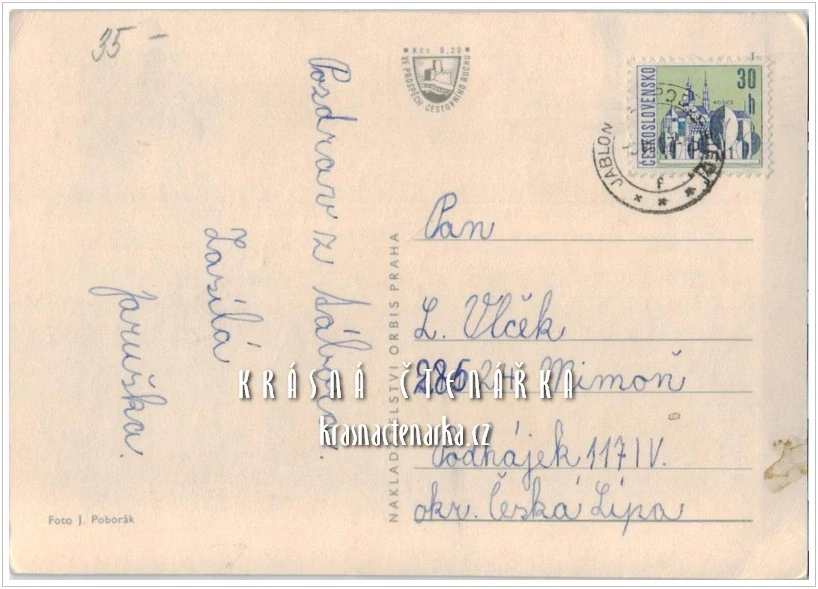 35 –
Kčs 0,20
VE PROSPĚCH CESTOVNÍHO RUCHU
ČESKOSLOVENSKO
30
h
JABLON
Pozdrav z tábora.
Zasílá
Jaruška.
NAKLADATELSTVÍ ORBIS PRAHA
Pan
L. Vlček
Mimoň
Podhájek 117/IV.
okr. Česká Lípa
KRÁSNÁ ČTENÁŘKA
krasnactenarka.cz
Foto J. Poborák